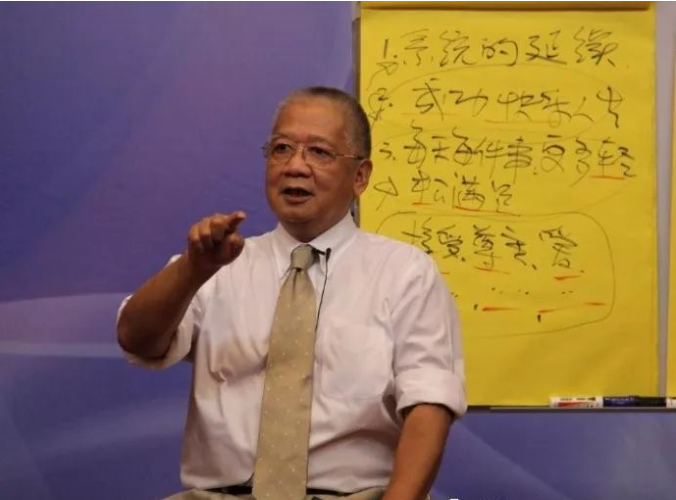 1. 系统的延续
2. 成功快乐人生
3. 每天每件事、更多轻
松满足
接受、尊主、赏